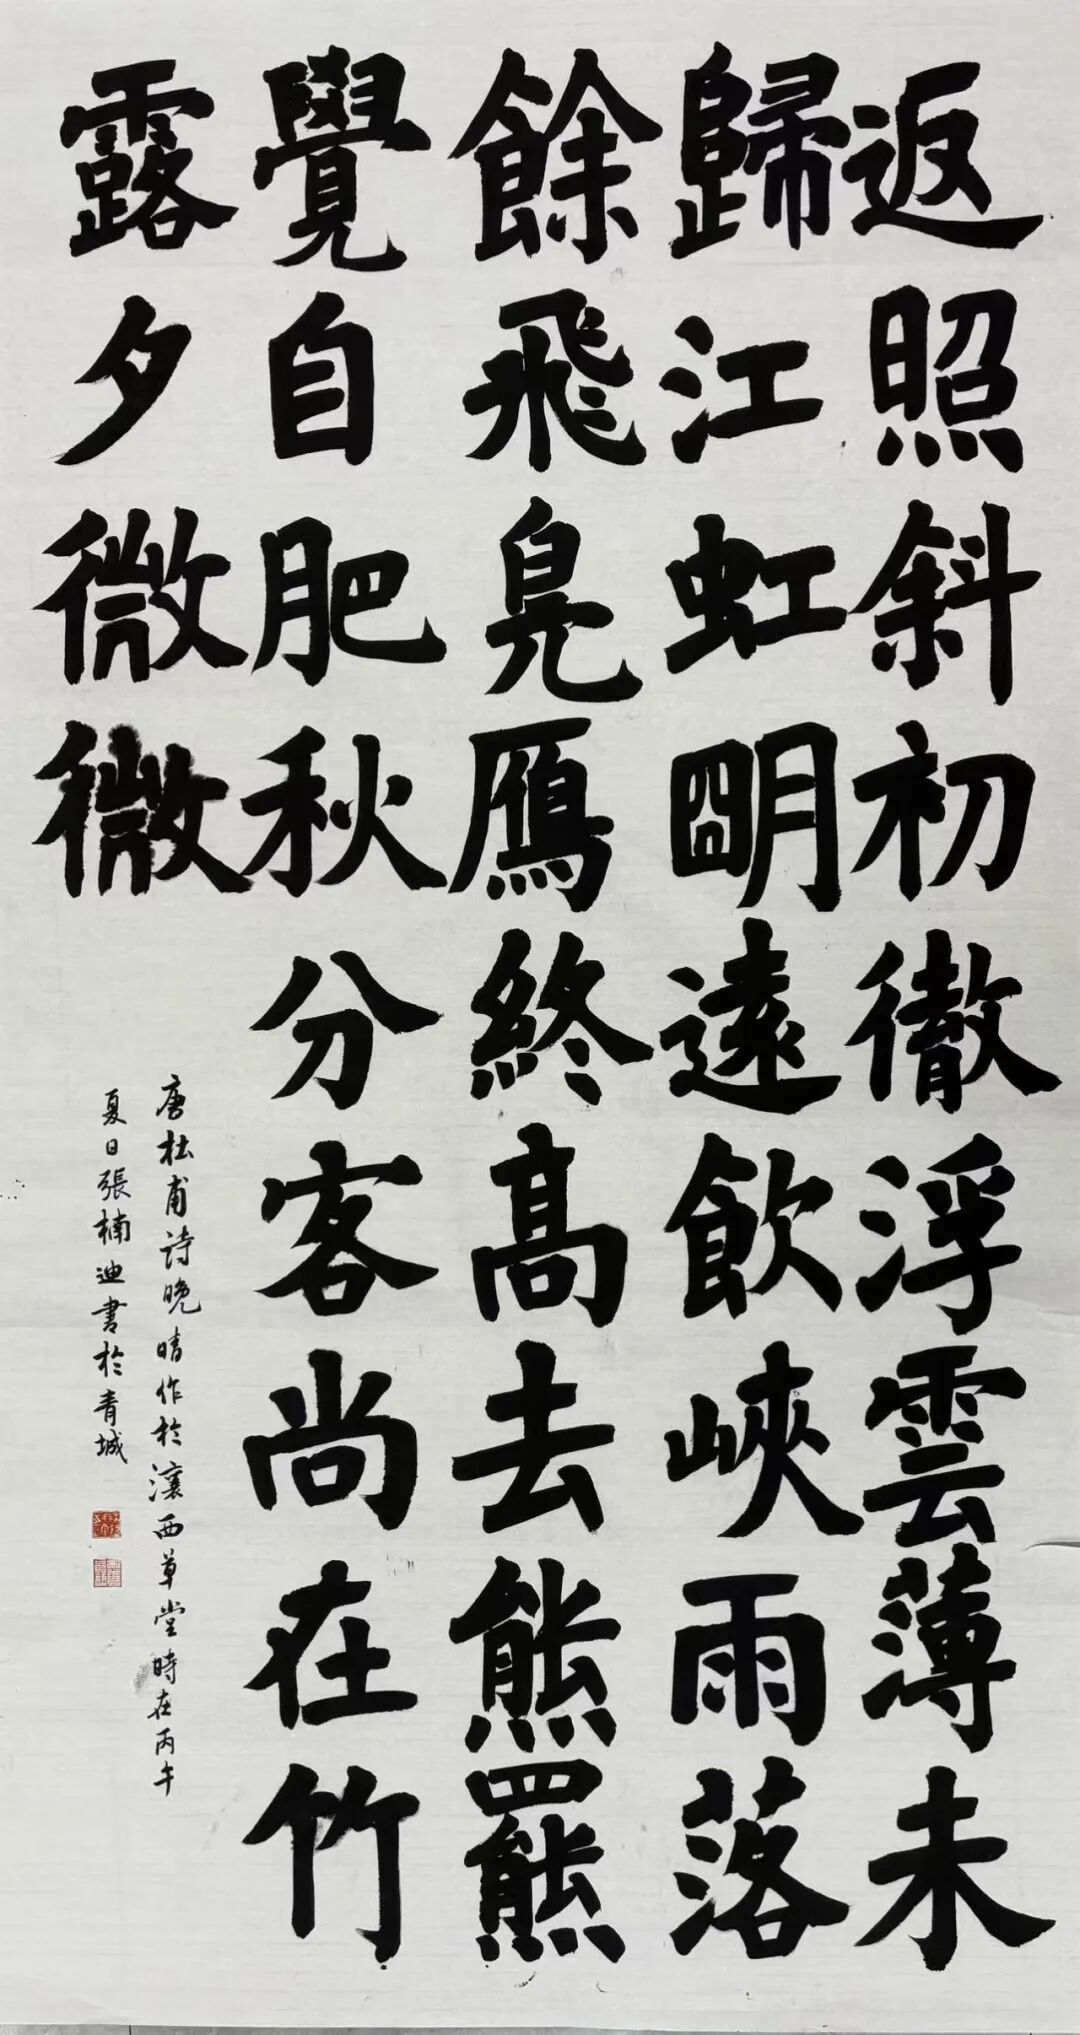 返照斜初徹浮雲薄未
歸江虹明遠飲峽雨落
餘飛鳧鴈終高去熊羆
覺自肥秋分客尚在竹
露夕微微
唐杜甫詩晚晴作於瀼西草堂時在丙午
夏日張楠迪書於青城